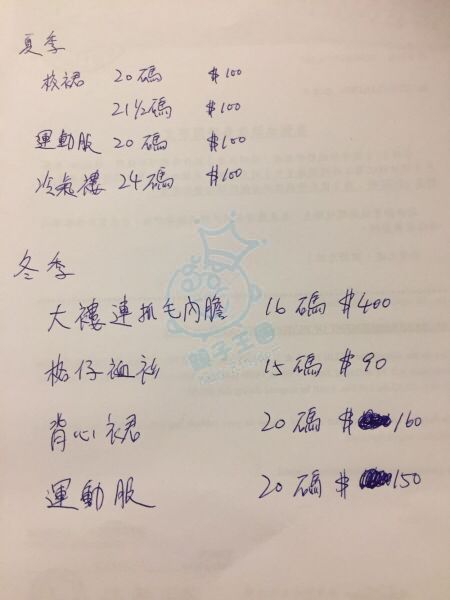 夏季
校裙 20碼 $100
21½碼 $100
運動服 20碼 $100
冷氣褸 24碼 $100
冬季
大褸連抓毛內膽 16碼 $400
格仔恤衫 15碼 $90
背心裙 20碼 $160
運動服 20碼 $150
親子王國